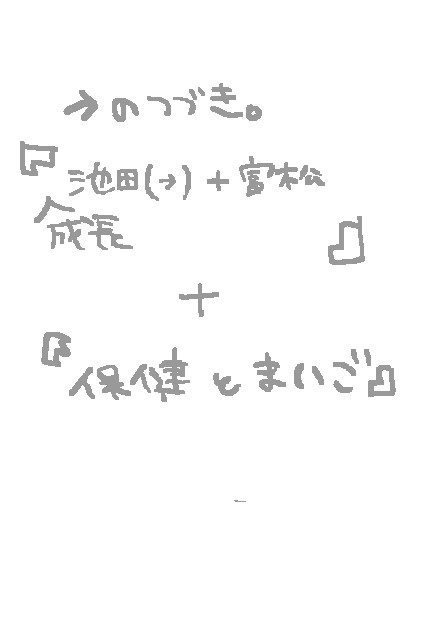 →のつづき。
『池田(→)+富松
^成長 』
+
『保健とまいご』